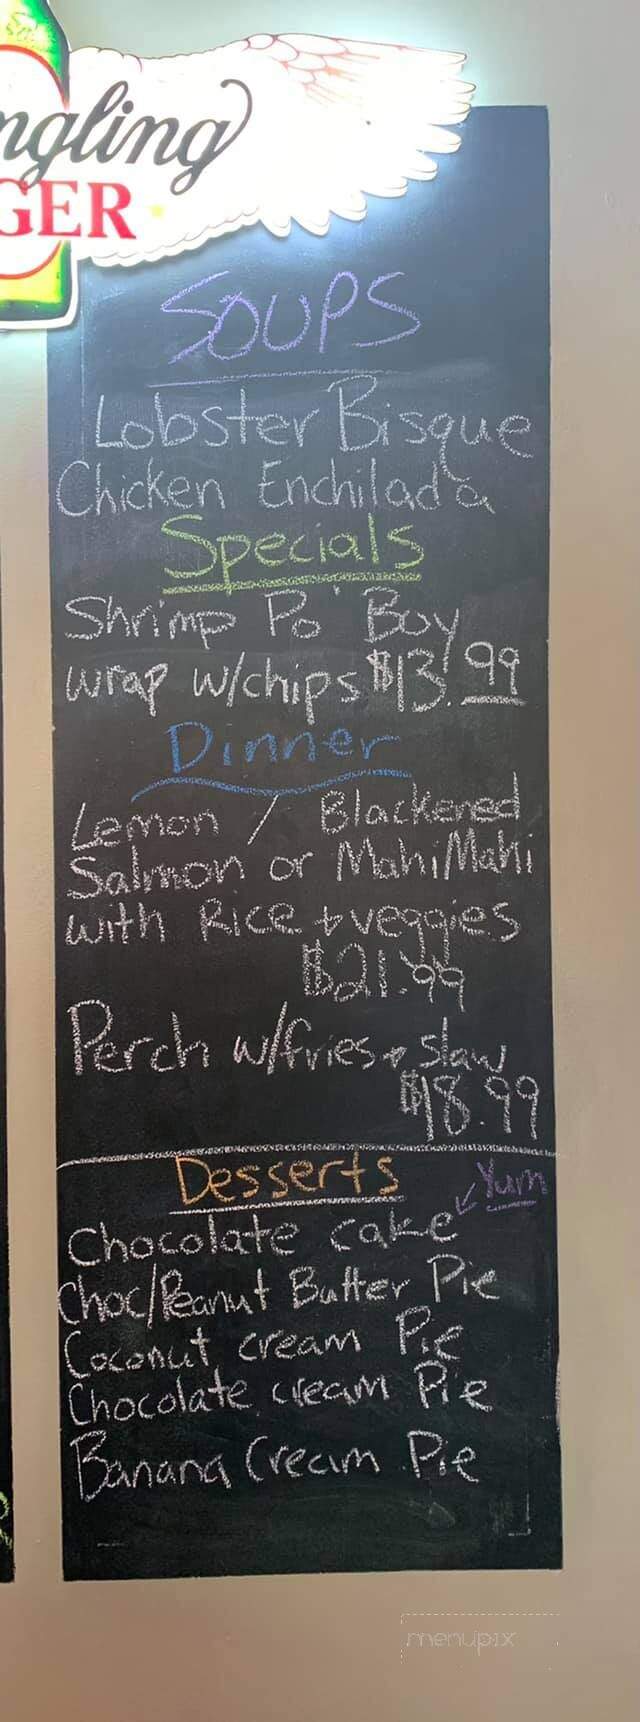 ngling
GER
SOUPS
Lobster Bisque
Chicken Enchilada
Specials
Shrimp Po' Boy
wrap w/chips $13.99
Dinner
Lemon / Blackened
Salmon or Mahi Mahi
with Rice + veggies
$21.99
Perch w/fries + slaw
$18.99
Desserts
Yum
Chocolate cake
Choc/Peanut Butter Pie
Coconut cream Pie
Chocolate cream Pie
Banana Cream Pie
menupix